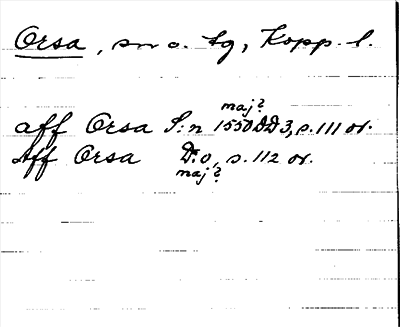 Orsa, sn o. tg, Kopp. l.
maj?
aff Orsa S:n 1550 DD 3, s. 111 or.
Aff Orsa D:o, s. 112 or.
maj?